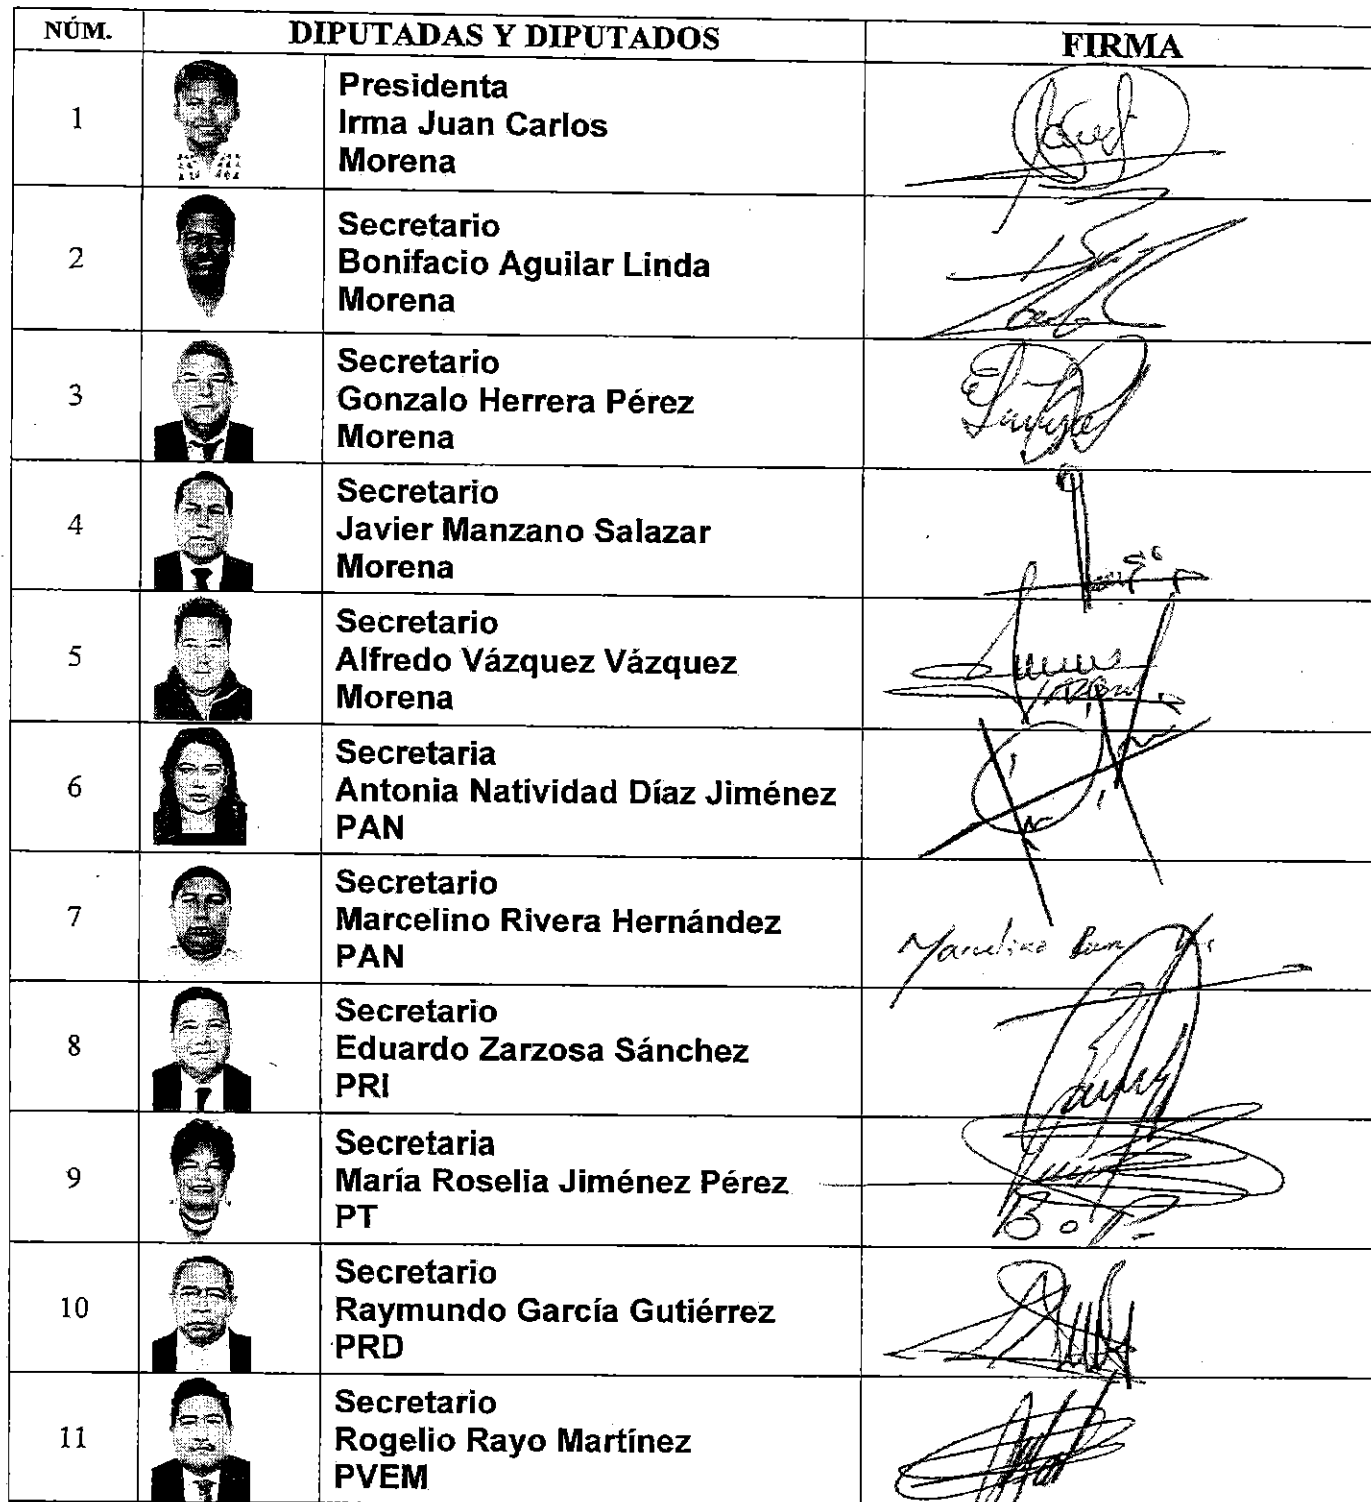 NÚM. DIPUTADAS Y DIPUTADOS FIRMA
1
Presidenta
Irma Juan Carlos
Morena
2
Secretario
Bonifacio Aguilar Linda
Morena
3
Secretario
Gonzalo Herrera Pérez
Morena
4
Secretario
Javier Manzano Salazar
Morena
5
Secretario
Alfredo Vázquez Vázquez
Morena
6
Secretaria
Antonia Natividad Díaz Jiménez
PAN
7
Secretario
Marcelino Rivera Hernández
PAN
Marcelino
8
Secretario
Eduardo Zarzosa Sánchez
PRI
9
Secretaria
María Roselia Jiménez Pérez
PT
10
Secretario
Raymundo García Gutiérrez
PRD
11
Secretario
Rogelio Rayo Martínez
PVEM